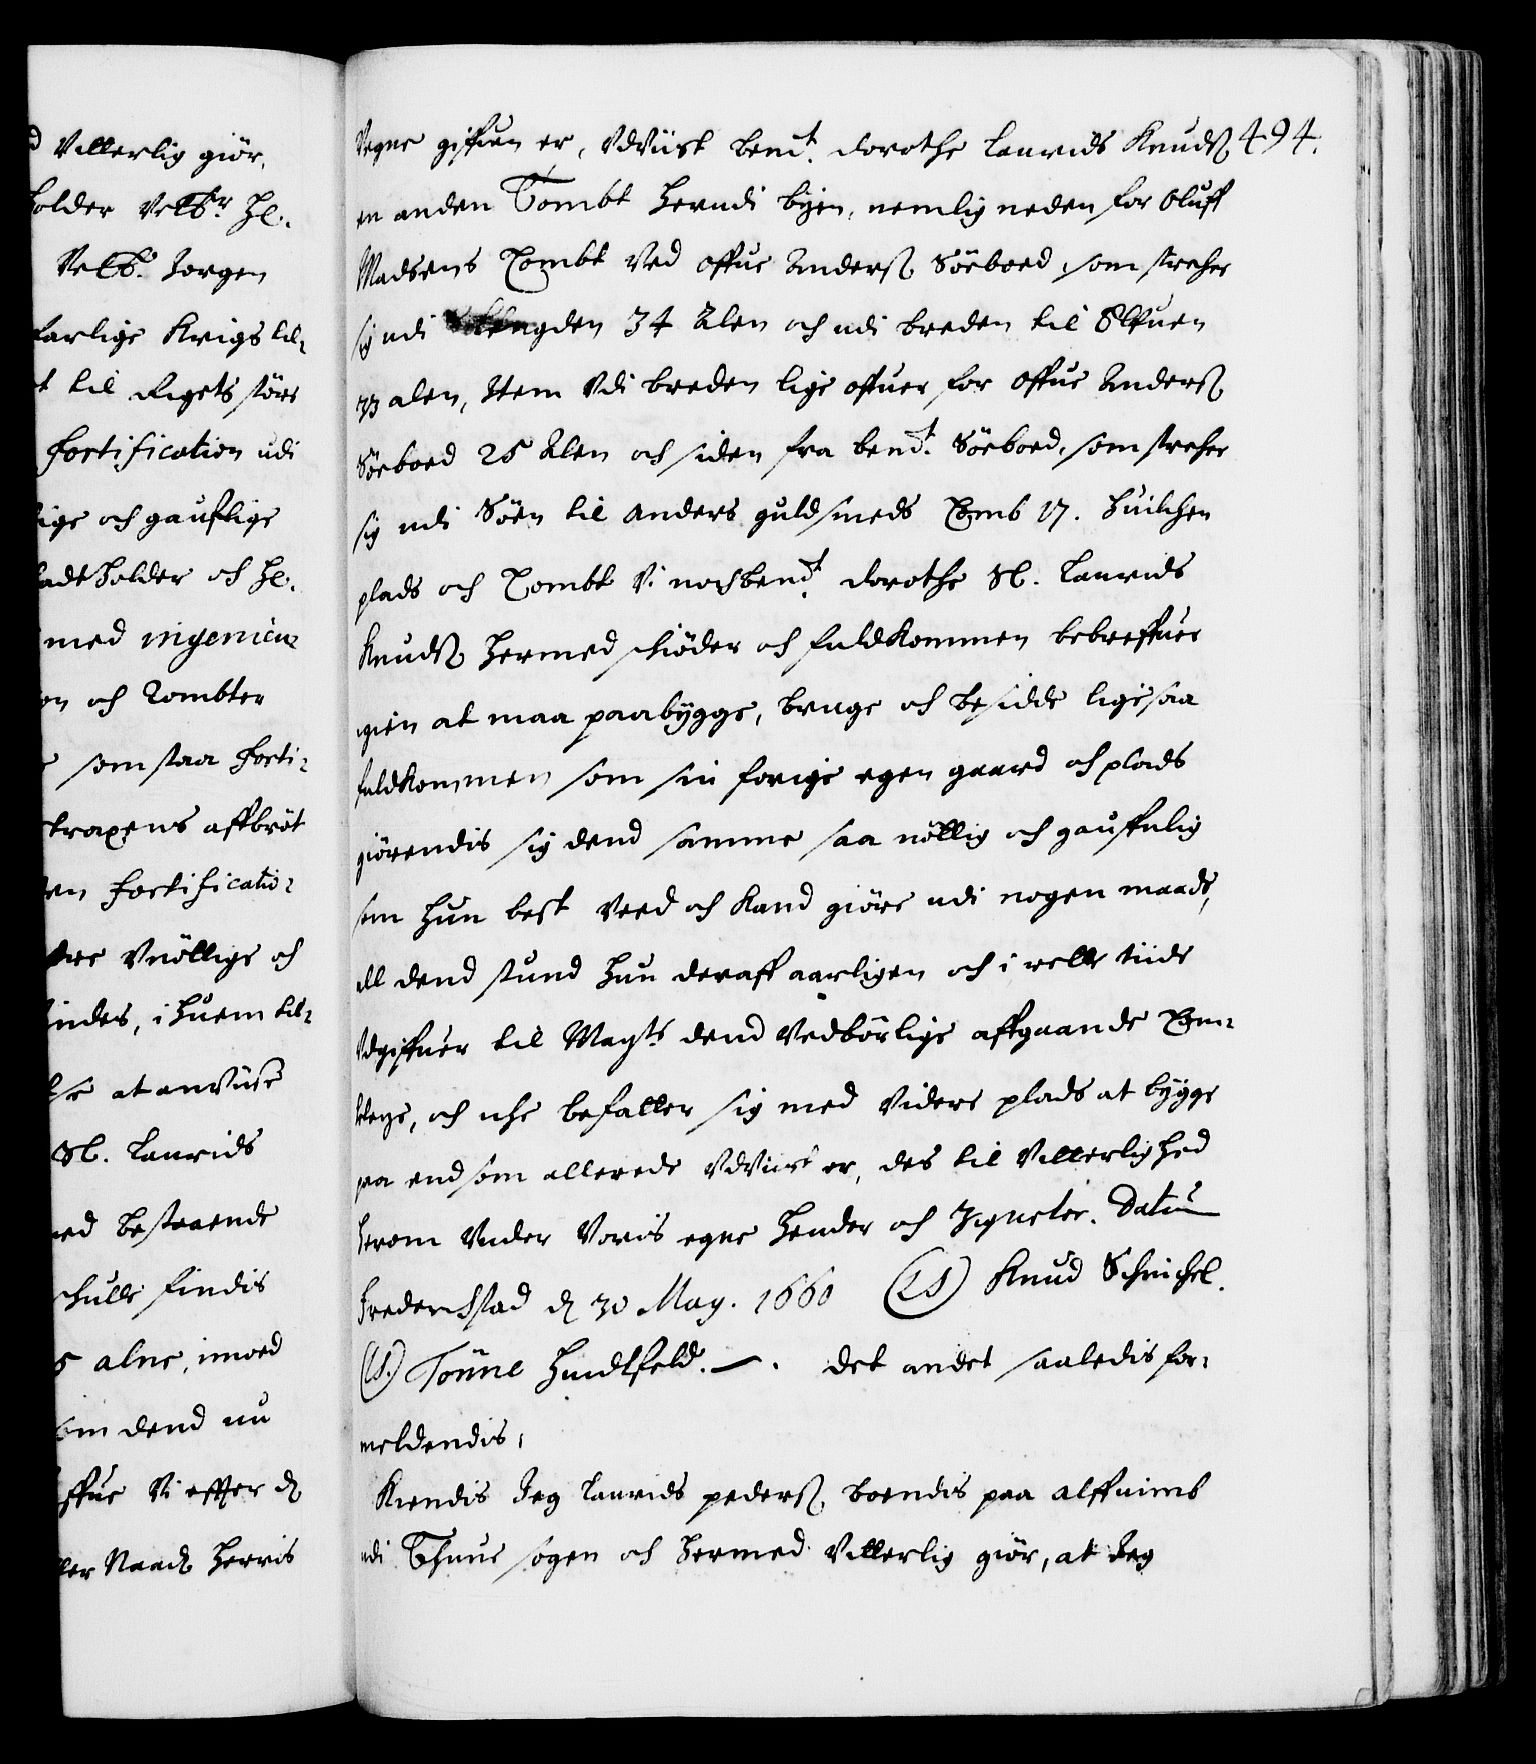 Villerlig giör,
holder Velb:r Hl:
Velb: Jorgen
farlige Krigs til-
t til Rigets störe
fortification udi
lige och gaufflige
ladtholder och Hl.
med ingenieu-
en och Tombter
som staa forti-
straxens affbröt
en fortificatio-
Vnöttige och
findes, i huem til-
lse at anviise
Sl. Laurids
ed bestaaende
schulle findis
5 alne, imoed
om dend nu
ffue Vi effter d
ller Naad Herris
Vegne giffuen er, Vdviist bem.t dorothe Laurids Knuds 494.
en anden Tombt herudi byen, nemlig neden for Oluff
Madsens Tombt Ved Offue Anders Söeboed, som strecher
sig udi Lengden 34 Alen och udi breden til Elffuen
33 alen, Item Vdi breden lige offuer for Offue Anders
Söeboed 25 Alen och siden fra bem.t Söeboed, som strecher
sig udi Söen til Anders guldsmeds 17. huilchen
plads och Tombt Vi nochbem.t dorothe Sl. Laurids
Knuds hermed schiöder och fuldkommen bebreffuer
igien at maa paabygge, bruge och besidde ligesaa
fuldkommen som sin forige egen gaard och plads
giörendis sig dend samme saa nöttig och gauffnlig
som hun best Veed och kand giöre udi nogen maade,
all dend stund hun deraff aarligen och i rette tiide
Vdgiffuer til May:ts dend Vedbörlige affgaande
och iche befatter sig med Videre plads at bygge
paa end som allerede Vdviist er, des til Vitterlighed
herom Vnder Voris egne hender och Zigneter. Datum
Frederichstad d 30 May. 1660 (LS) Knud Schinchel.
(LS.) Tönne Huidtfeld. —. det andet saaledis for-
meldendis,
Kiendis Jeg Laurids peders, boendis paa alffuimb
udi Thune sogen och hermed Vitterlig giör, at Jeg